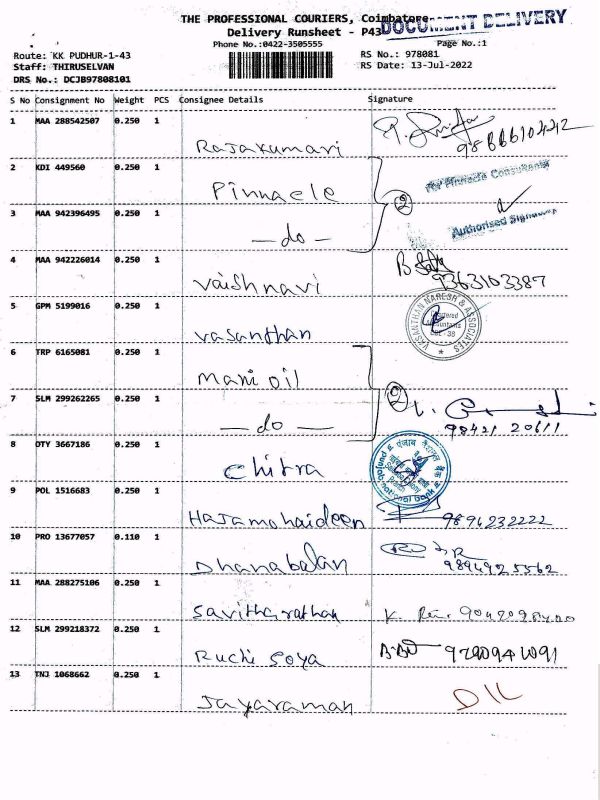 THE PROFESSIONAL COURIERS, Coimbatore
DOCUMENT DELIVERY
Delivery Runsheet - P43
Phone No.:0422-3505555
Page No.:1
Route: KK PUDHUR-1-43
RS No.: 978081
Staff: THIRUSELVAN
RS Date: 13-Jul-2022
DRS No.: DCJB97808101
S No Consignment No Weight PCS Consignee Details Signature
1 MAA 288542507 0.250 1
Rajakumari
2 KDI 449560 0.250 1
Pinnacle
For Pinnacle Consultants
2
3 MAA 942396495 0.250 1
— do —
Authorised Signatory
4 MAA 942226014 0.250 1
Vaishnavi 9363103387
5 GPM 5199016 0.250 1
Vasanthan
VASANTHAN NARESH & ASSOCIATES
Chartered
Accountants
6 TRP 6165081 0.250 1
Mani oil
2
7 SLM 299262265 0.250 1
— do — 98421 20611
8 OTY 3667186 0.250 1
Chitra
पंजाब नैशनल बैंक
punjab national bank
9 POL 1516683 0.250 1
Hajamohaideen 9894232222
10 PRO 13677057 0.110 1
Dhanabalan 9894925562
11 MAA 288275106 0.250 1
Savitharathan
12 SLM 299218372 0.250 1
Ruchi Soya
13 TNJ 1068662 0.250 1
Jayaraman D/L